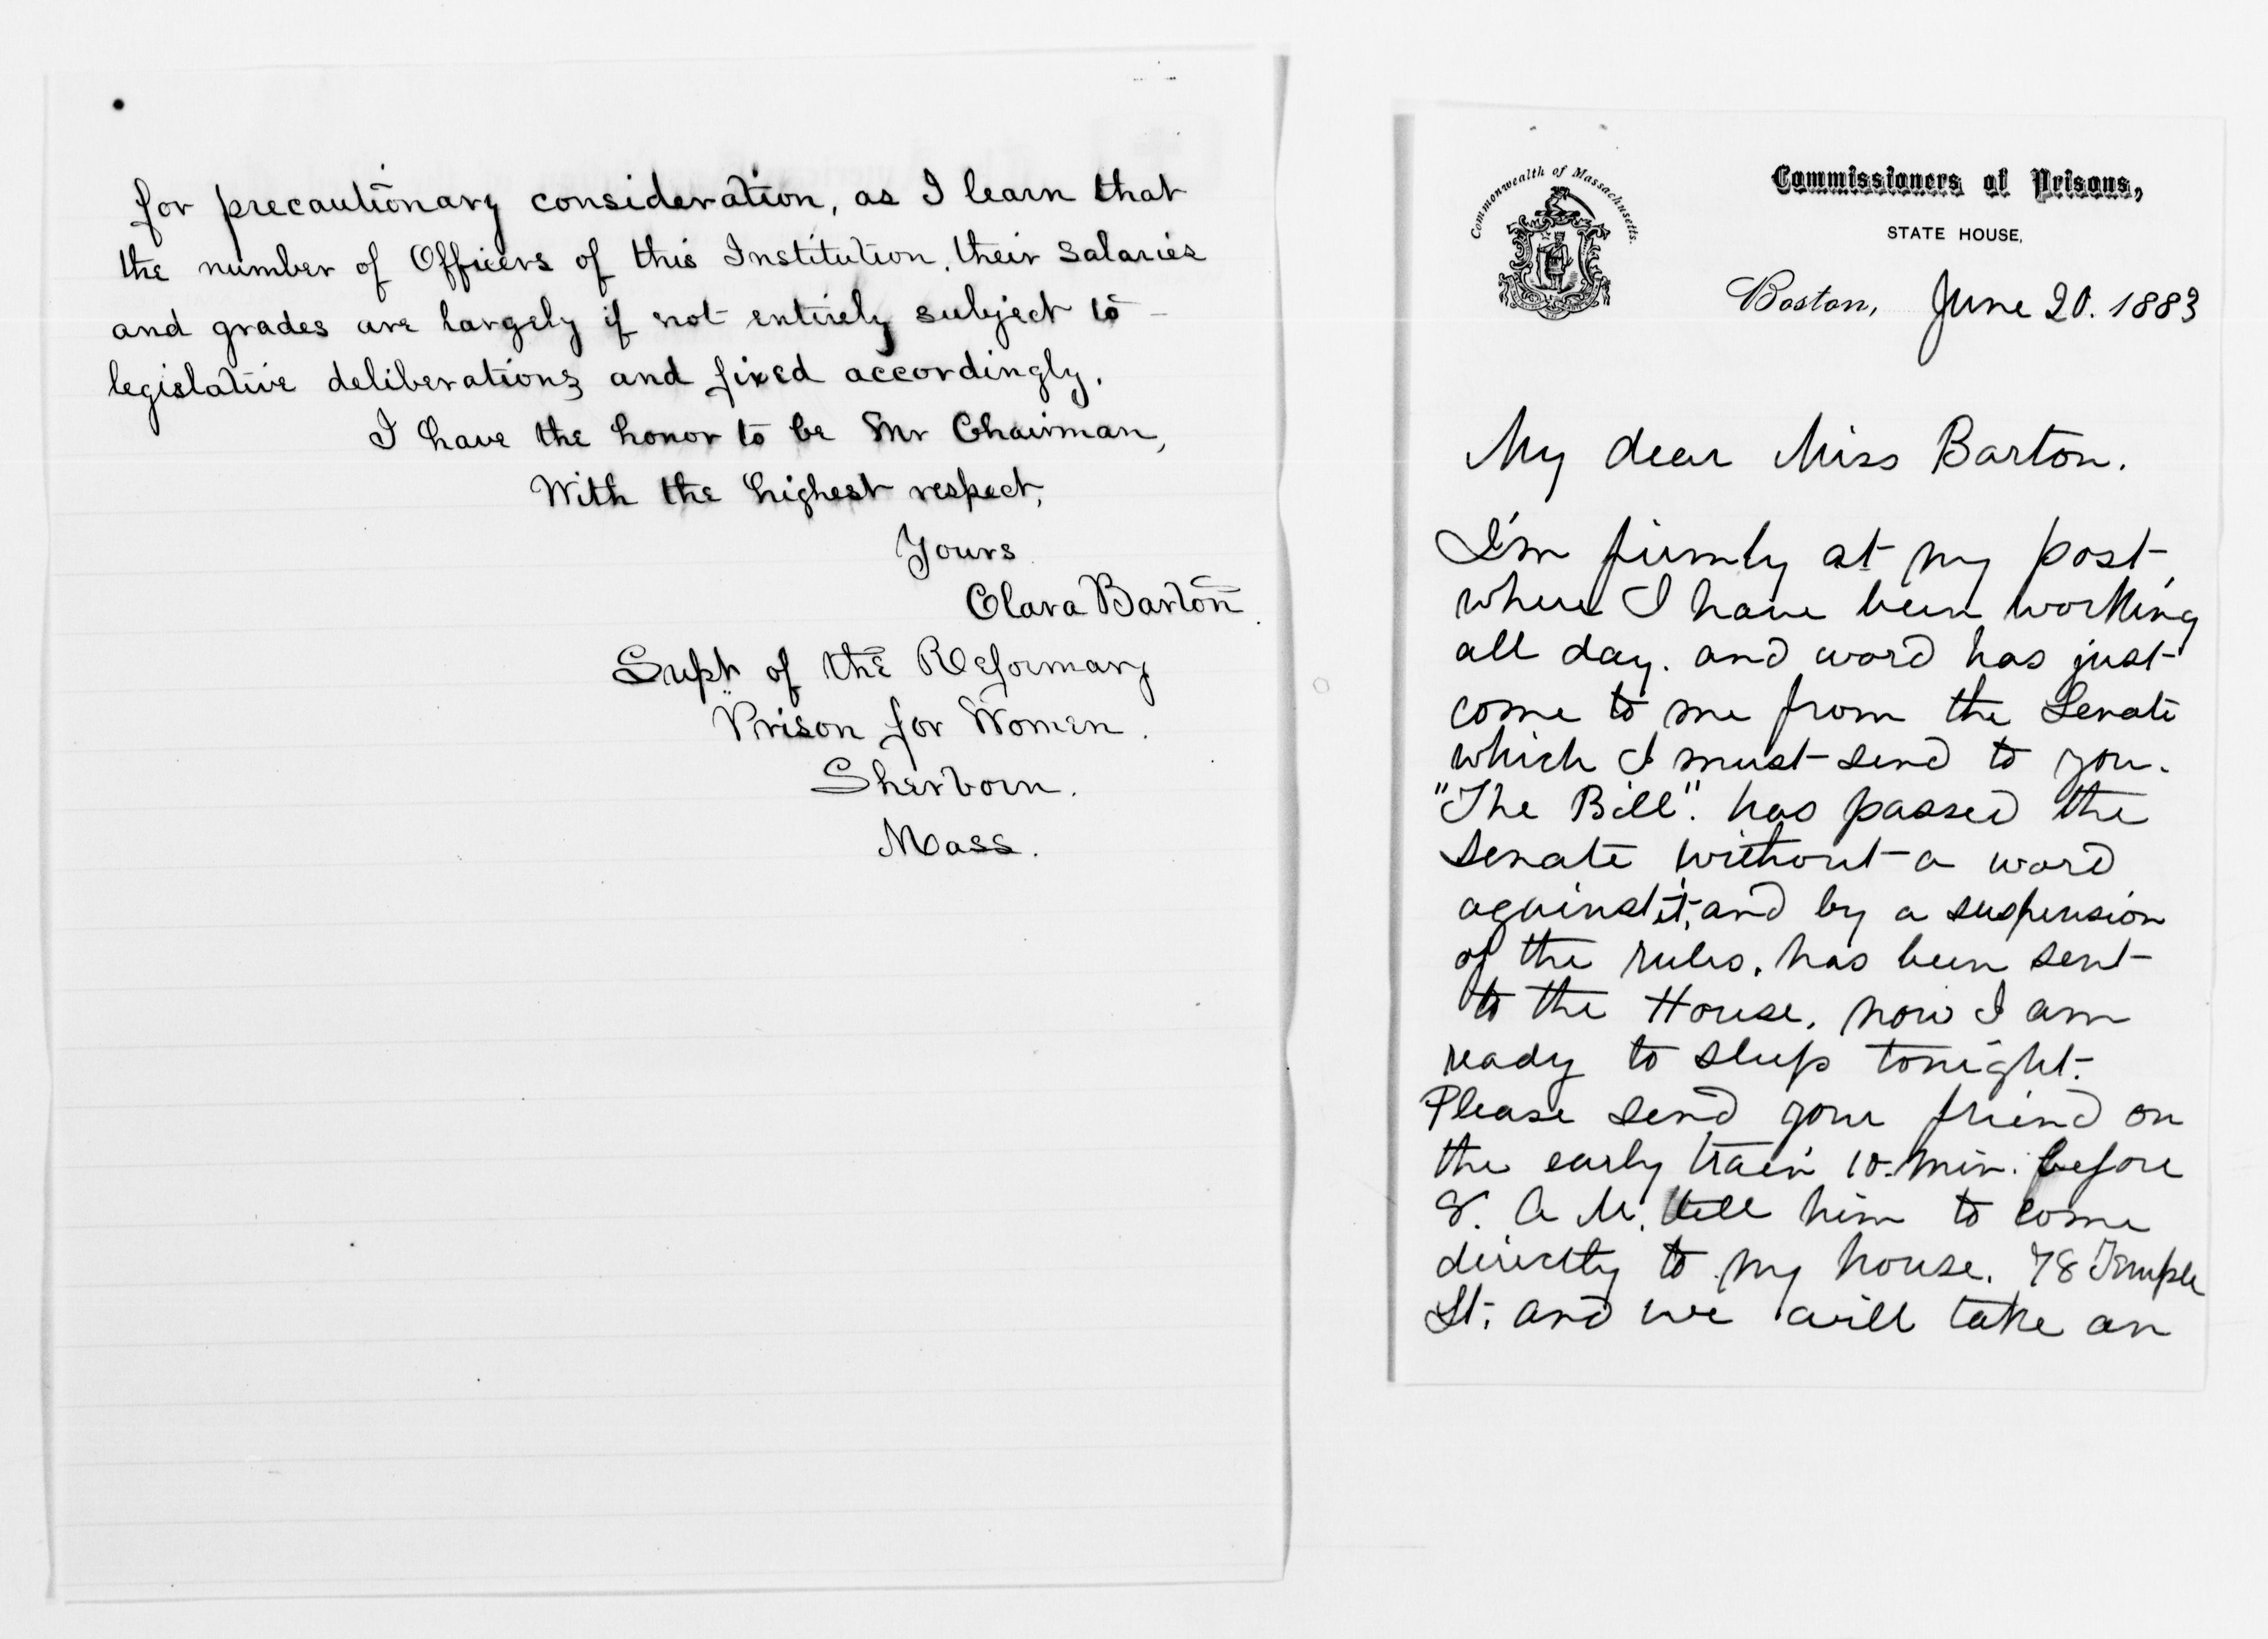 for precautionary consideration, as I learn that
the number of Officers of this Institution, their salaries
and grades are largely if not entirely subject to
legislative deliberations and fixed accordingly.
I have the honor to be Mr Chairman,
With the highest respect,
Yours
Clara Barton
Supt of the Reformary
Prison for Women.
Sherborn.
Mass.
Commonwealth of Massachusetts.
Commissioners of Prisons,
STATE HOUSE,
Boston, June 20. 1883
My dear Miss Barton.
I'm firmly at my post,
where I have been working
all day. and word has just
come to me from the Senate
which I must send to you.
"The Bill". has passed the
Senate without a word
against it, and by a suspension
of the rules, has been sent
to the House, now I am
ready to sleep tonight.
Please send your friend on
the early train 10. min. before
8. A M. tell him to come
directly to my house. 78 Temple
St. and we will take an